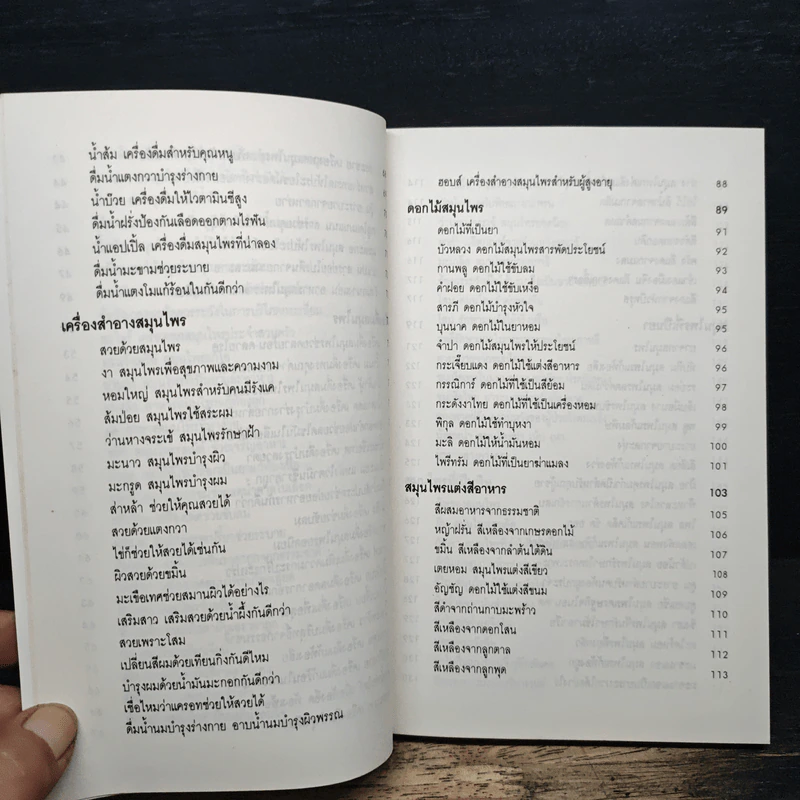 น้ำส้ม เครื่องดื่มสำหรับคุณหนู
ดื่มน้ำแตงกวาบำรุงร่างกาย
น้ำบ๊วย เครื่องดื่มให้ไวตามินซีสูง
ดื่มน้ำฝรั่งป้องกันเลือดออกตามไรฟัน
น้ำแอปเปิ้ล เครื่องดื่มสมุนไพรที่น่าลอง
ดื่มน้ำมะขามช่วยระบาย
ดื่มน้ำแตงโมแก้ร้อนในกันดีกว่า
เครื่องสำอางสมุนไพร
สวยด้วยสมุนไพร
งา สมุนไพรเพื่อสุขภาพและความงาม
หอมใหญ่ สมุนไพรสำหรับคนมีรังแค
ส้มป่อย สมุนไพรใช้สระผม
ว่านหางจระเข้ สมุนไพรรักษาฝ้า
มะนาว สมุนไพรบำรุงผิว
มะกรูด สมุนไพรบำรุงผม
ส่าหล้า ช่วยให้คุณสวยได้
สวยด้วยแตงกวา
ไข่ก็ช่วยให้สวยได้เช่นกัน
ผิวสวยด้วยขมิ้น
มะเขือเทศช่วยสมานผิวได้อย่างไร
เสริมสาว เสริมสวยด้วยน้ำผึ้งกันดีกว่า
สวยเพราะโสม
เปลี่ยนสีผมด้วยเทียนกิ่งกันดีไหม
บำรุงผมด้วยน้ำมันมะกอกกันดีกว่า
เชื่อไหมว่าแครอทช่วยให้สวยได้
ดื่มน้ำนมบำรุงร่างกาย อาบน้ำนมบำรุงผิวพรรณ
ฮอบส์ เครื่องสำอางสมุนไพรสำหรับผู้สูงอายุ 88
ดอกไม้สมุนไพร 89
ดอกไม้ที่เป็นยา 91
บัวหลวง ดอกไม้สมุนไพรสารพัดประโยชน์ 92
กานพลู ดอกไม้ใช้ขับลม 93
คำฝอย ดอกไม้ใช้ขับเหงื่อ 94
สารภี ดอกไม้บำรุงหัวใจ 95
บุนนาค ดอกไม้ในยาหอม 95
จำปา ดอกไม้สมุนไพรให้ประโยชน์ 96
กระเจี๊ยบแดง ดอกไม้ใช้แต่งสีอาหาร 96
กรรณิการ์ ดอกไม้ที่ใช้เป็นสีย้อม 97
กระดังงาไทย ดอกไม้ที่ใช้เป็นเครื่องหอม 98
พิกุล ดอกไม้ใช้ทำบุหงา 99
มะลิ ดอกไม้ให้น้ำมันหอม 100
ไพรีทรัม ดอกไม้ที่เป็นยาฆ่าแมลง 101
สมุนไพรแต่งสีอาหาร 103
สีผสมอาหารจากธรรมชาติ 105
หญ้าฝรั่น สีเหลืองจากเกษรดอกไม้ 106
ขมิ้น สีเหลืองจากลำต้นใต้ดิน 107
เตยหอม สมุนไพรแต่งสีเขียว 108
อัญชัญ ดอกไม้ใช้แต่งสีขนม 109
สีดำจากถ่านกาบมะพร้าว 110
สีเหลืองจากดอกโสน 111
สีเหลืองจากลูกตาล 112
สีเหลืองจากลูกพุด 113